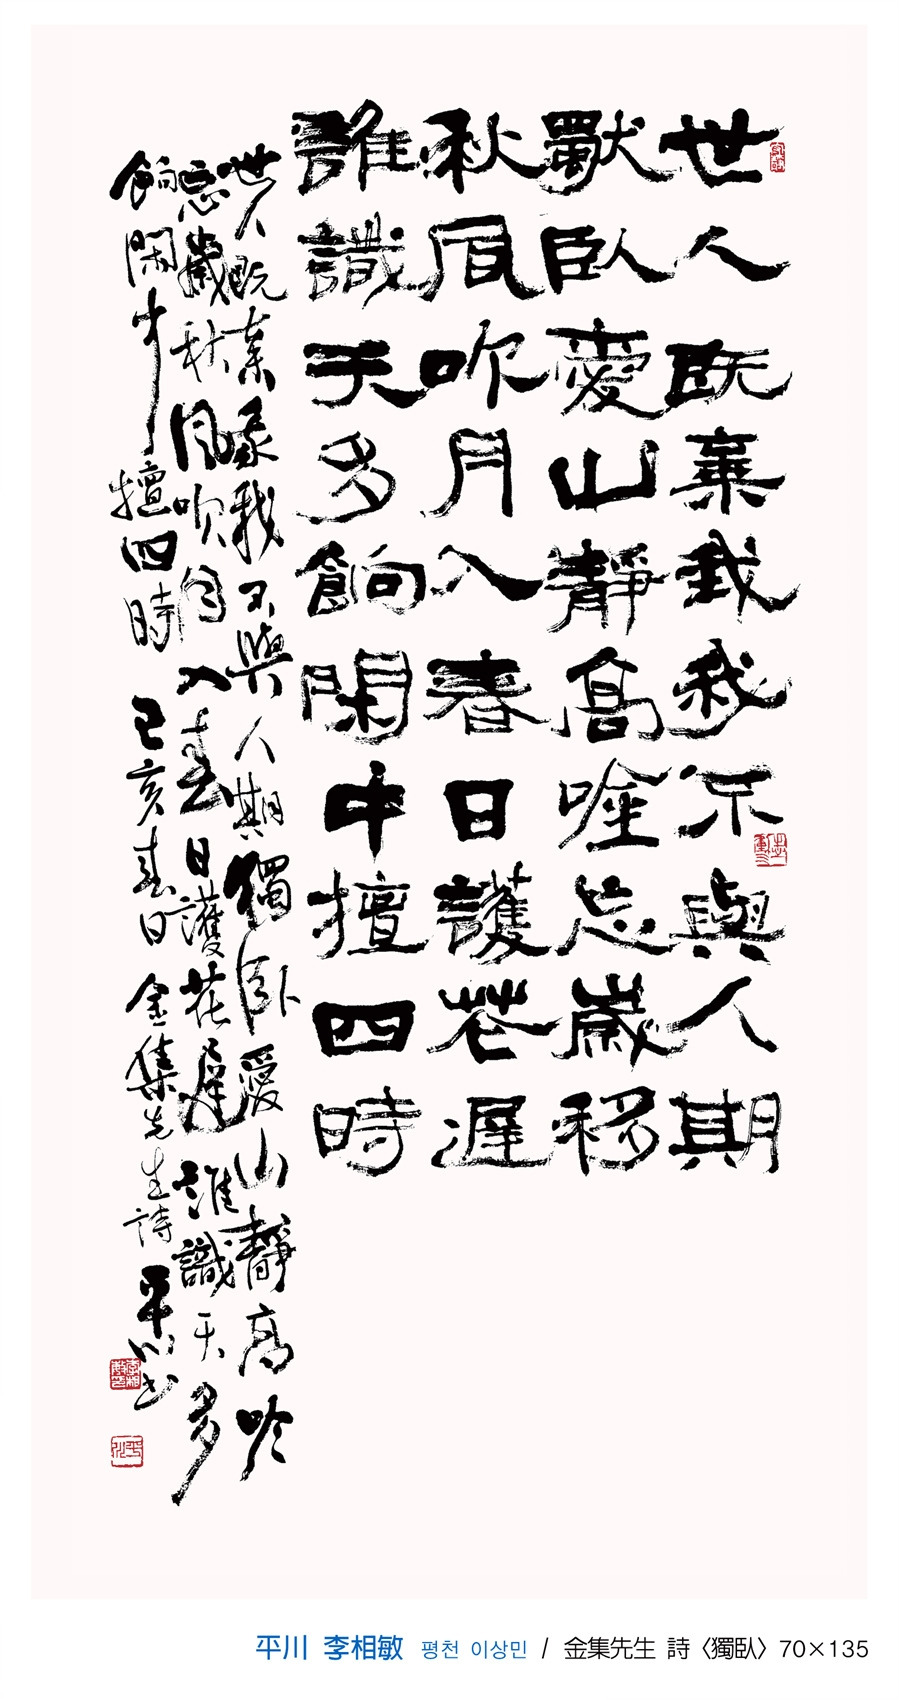 世人既棄我我不與人期
獨臥愛山靜高唫忘歲移
秋風吹月入春日護花遲
誰識天多餉閑中擅四時
世人既棄我我不與人期獨臥愛山靜高吟
忘歲秋風吹月入春日護花遲誰識天多
餉閑中擅四時 己亥春日 金集先生詩 平川書
平川 李相敏 평천 이상민 / 金集先生 詩〈獨臥〉70×135